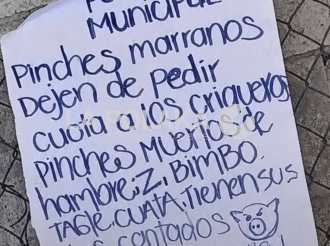 Municipal
Pinches marranos
Dejen de Pedir
cuota a los chiqueros
Pinches muertos de
hambre; Z; Bimbo.
Table. CUATA; Tienen sus
contados